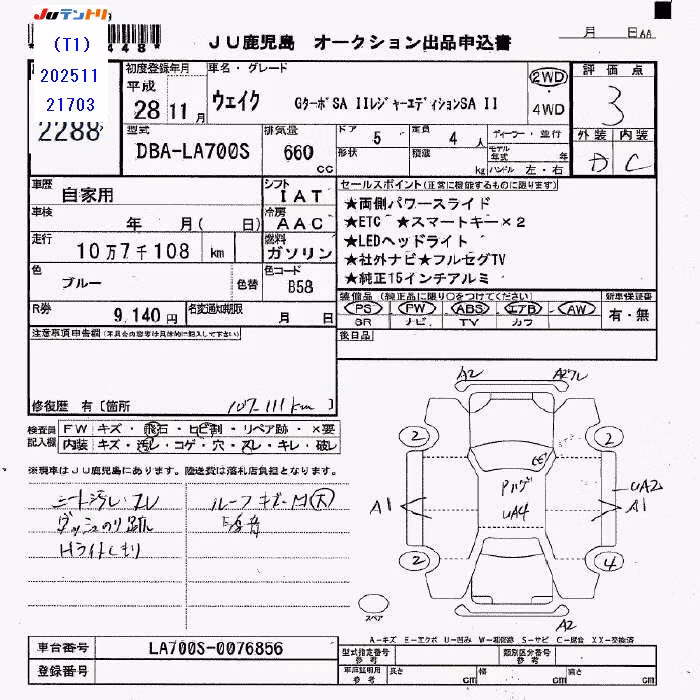 JUテントリ
448*
(T1)
202511
21703
2288
JU鹿児島 オークション出品申込書
月 日
初度登録年月
平成
28年11月
車名・グレード
ウェイク GターボSA IIレジャーエディションSA II
2WD
・
4WD
評価点
3
外装 内装
D C
型式
DBA-LA700S
排気量
660
cc
ドア 5
形状
定員 4 人
積載 kg
ディーラー・並行
モデル年式 年
ハンドル 左・右
車歴
自家用
シフト
IAT
車検
年 月( 日)
冷房
AAC
走行
10万7千108 km
燃料
ガソリン
色
ブルー
色替
色コード
B58
R券
9,140円
名変通知期限
月 日
セールスポイント(正常に機能するものに限ります)
★両側パワースライド
★ETC ★スマートキー×2
★LEDヘッドライト
★社外ナビ★フルセグTV
★純正15インチアルミ
装備品(純正品に限り○をつけてください)
PS PW ABS エアB AW
SR ナビ TV カワ
新車保証書
有・無
後日品
注意事項申告欄(不具合の内容は具体的に記入して下さい)
修復歴 有〔箇所 107-111km 〕
検査員記入欄
FW キズ・飛石・ヒビ割・リペア跡・×要
内装 キズ・汚レ・コゲ・穴・スレ・キレ・破レ
※現車はJU鹿児島にあります。陸送費は落札店負担となります。
シート汚レ・スレ
ダッシュのり跡
Hライトくもり
ルーフキズ・凹(大)
A2
A2
2
2
A1
UA4
UA2
A1
2
4
スペア
A2
A-キズ E-エクボ U-凹み W-補修跡 S-サビ C-腐食 XX-交換済
車台番号
LA700S-0076856
登録番号
型式指定番号
参考
類別区分番号
参考
車庫証明用
参考
長さ cm
幅 cm
高さ cm